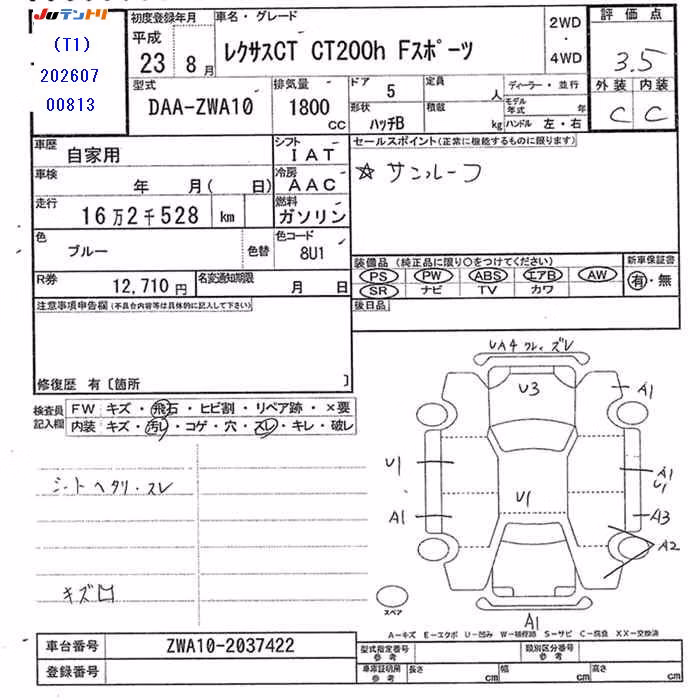 Juテントリ
(T1)
202607
00813
初度登録年月
平成
23 8月
車名・グレード
レクサスCT CT200h Fスポーツ
2WD
・
4WD
評価点
3.5
外装 内装
C C
型式
DAA-ZWA10
排気量
1800
CC
ドア
5
定員
人
形状
ハッチB
積載
kg
ディーラー・並行
モデル年式 年
ハンドル 左・右
車歴
自家用
シフト
IAT
車検
年 月( 日)
冷房
AAC
走行
16万2千528 km
燃料
ガソリン
色
ブルー
色替
色コード
8U1
R券
12,710円
名変通知期限
月 日
セールスポイント(正常に機能するものに限ります)
☆サンルーフ
装備品(純正品に限り○をつけてください)
PS PW ABS エアB AW
SR ナビ TV カワ
新車保証書
有・無
後日品
注意事項申告欄(不具合内容等は具体的に記入して下さい)
修復歴 有〔箇所 〕
検査員記入欄
FW キズ・飛石・ヒビ割・リペア跡・×要
内装 キズ・汚レ・コゲ・穴・スレ・キレ・破レ
シートヘタリ・スレ
キズ凹
UA4 ワレ、ズレ
U3
A1
U1
A1
U1
U1
A1
A3
A2
A1
スペア
A-キズ E-エクボ U-凹み W-補修跡 S-サビ C-腐食 XX-交換済
車台番号
ZWA10-2037422
登録番号
型式指定番号
参考
類別区分番号
参考
車庫証明用
参考
長さ cm 幅 cm 高さ cm